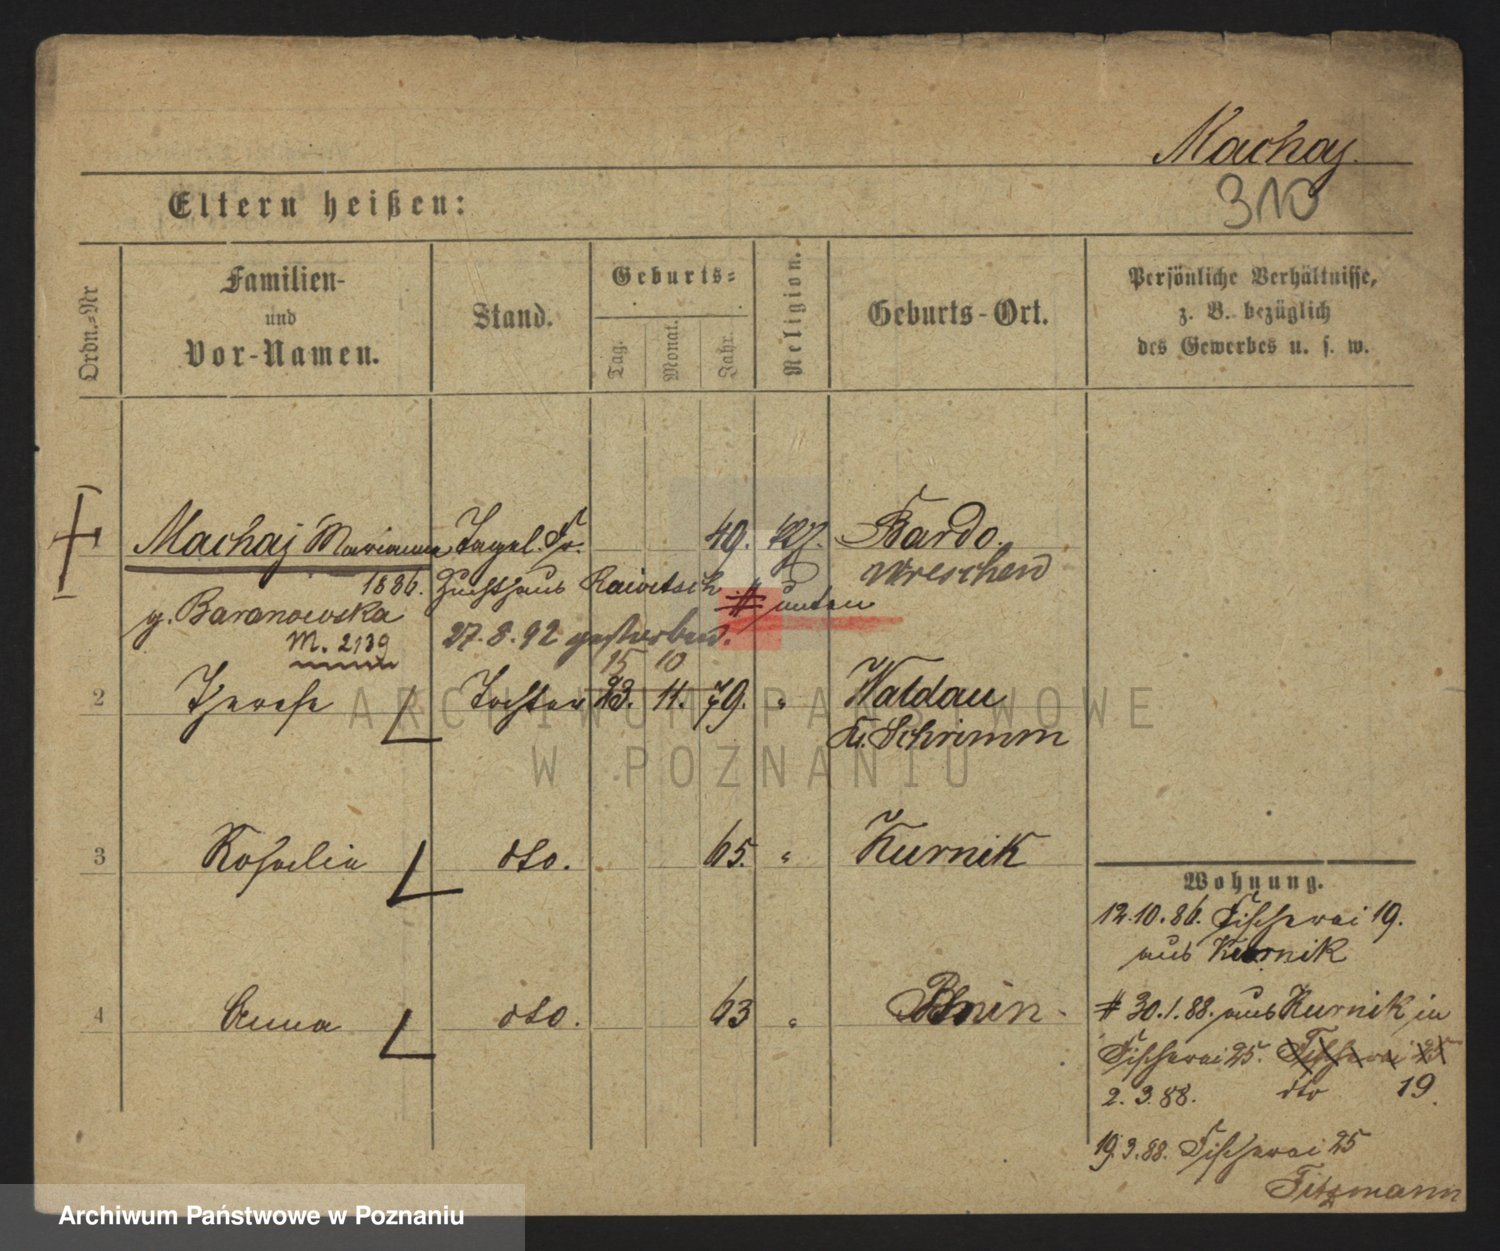 Machaj.
310
Eltern heißen:
Ordn.-Nr
Familien-
und
Vor-Namen.
Stand.
Geburts-
Tag.
Monat.
Jahr.
Religion.
Geburts-Ort.
Persönliche Verhältnisse,
z. B. bezüglich
des Gewerbes u. s. w.
Machaj Marianna Tagel. Fr. 49. Bardo.
Wreschen
1886. Zuchthaus Rawitsch # unten
g. Baranowska
M. 2139
27.8.92 gestorben.
15 10
2 Therese Tochter 23. 11. 79. " Waldau
Kr. Schrimm
3 Rosalia dto. 65. " Kurnik
4 Anna dto. 63 " Bnin
Wohnung.
12.10.86. Fischerei 19.
aus Kurnik
# 30.1.88. aus Kurnik in
Fischerei 25. Fischerei 25
2.3.88. dto 19.
19.3.88. Fischerei 25
Titzmann
ARCHIWUM PAŃSTWOWE
W POZNANIU
Archiwum Państwowe w Poznaniu